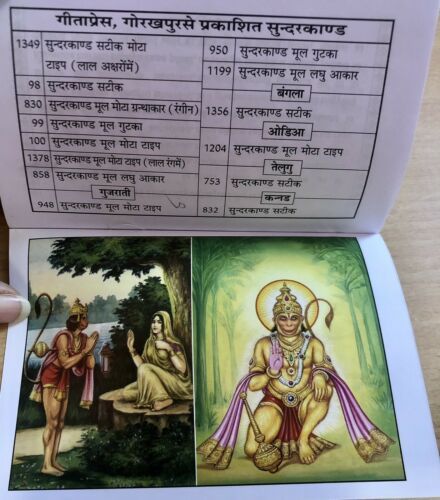 गीताप्रेस, गोरखपुरसे प्रकाशित सुन्दरकाण्ड
1349 सुन्दरकाण्ड सटीक मोटा
टाइप (लाल अक्षरोंमें)
98 सुन्दरकाण्ड सटीक
830 सुन्दरकाण्ड मूल मोटा ग्रन्थाकार (रंगीन)
99 सुन्दरकाण्ड मूल गुटका
100 सुन्दरकाण्ड मूल मोटा टाइप
1378 सुन्दरकाण्ड मूल मोटा टाइप (लाल रंगमें)
858 सुन्दरकाण्ड मूल लघु आकार
गुजराती
948 सुन्दरकाण्ड मूल मोटा टाइप
950 सुन्दरकाण्ड मूल गुटका
1199 सुन्दरकाण्ड मूल लघु आकार
बंगला
1356 सुन्दरकाण्ड सटीक
ओडिआ
1204 सुन्दरकाण्ड मूल मोटा टाइप
तेलुगु
753 सुन्दरकाण्ड सटीक
कन्नड
832 सुन्दरकाण्ड सटीक